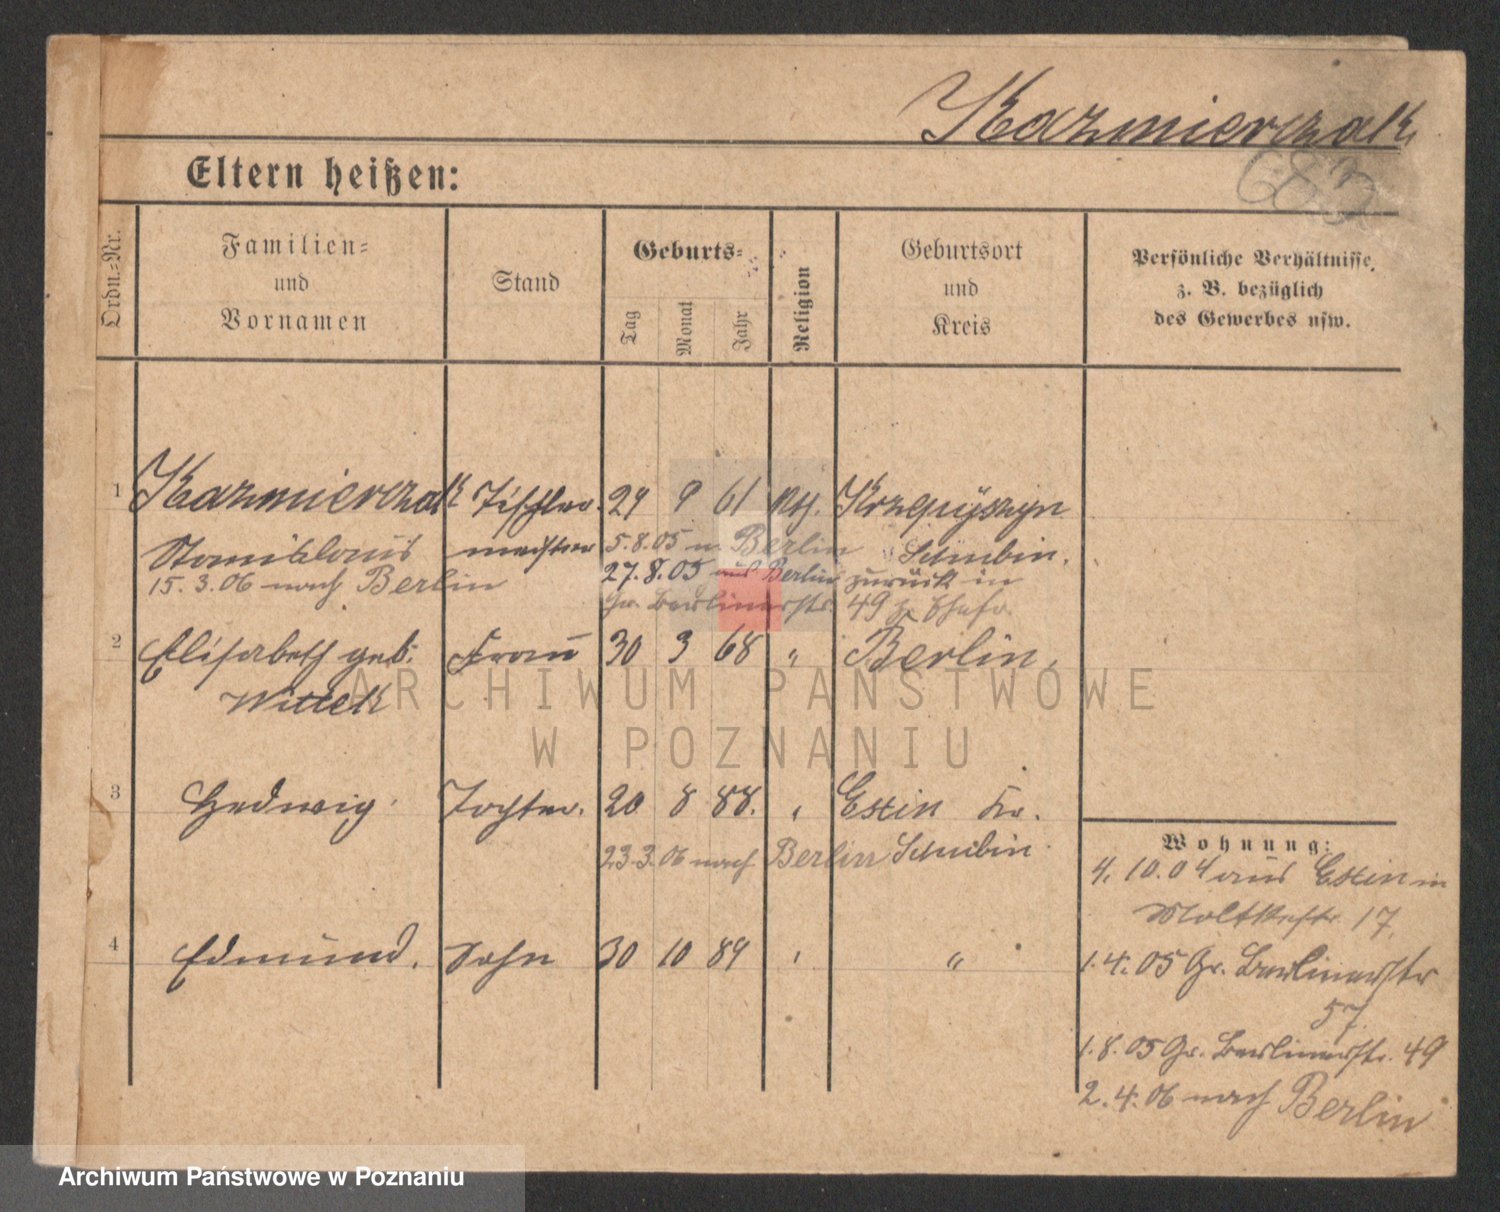 Kazmierczak
Eltern heißen:
Ordn.-Nr.
Familien-
und
Vornamen
Stand
Geburts-
Tag
Monat
Jahr
Religion
Geburtsort
und
Kreis
Persönliche Verhältnisse,
z. B. bezüglich
des Gewerbes usw.
1 Kazmierczak Tischler- 24 9 61 kth.
Stanislaus meister 5.8.05 n. Berlin Schubin.
15.3.06 nach Berlin 27.8.05 aus Berlin zurück in
Gr. Berlinerstr. 49 z. Ehefr.
2 Elisabeth geb. Frau 30 3 68 " Berlin.
Wittek
3 Hedwig. Tochter. 20 8 88. " Exin Kr.
23.3.06 nach Berlin Schubin.
4 Edmund. Sohn 30 10 89 " "
Wohnung:
4.10.04 aus Exin in
Moltkestr. 17.
1.4.05 Gr. Berlinerstr
57.
1.8.05 Gr. Berlinerstr. 49
2.4.06 nach Berlin
ARCHIWUM PAŃSTWOWE
W POZNANIU
Archiwum Państwowe w Poznaniu